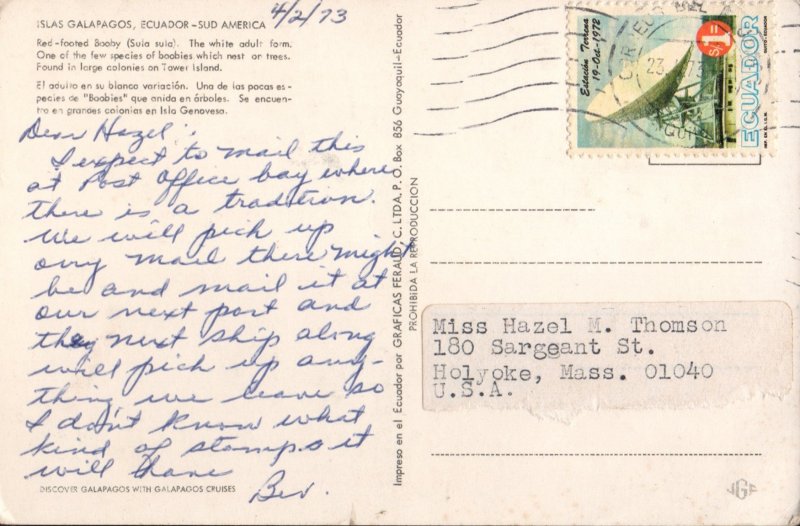 ISLAS GALAPAGOS, ECUADOR-SUD AMERICA
4/2/73
Red-footed Booby (Sula sula). The white adult form.
One of the few species of boobies which nest or trees.
Found in large colonies on Tower Island.
El adulto en su blanco variación. Una de las pocas es-
pecies de "Boobies" que anida en árboles. Se encuen-
tra en grandes colonias en Isla Genovesa.
Dear Hazel:
I expect to mail this
at Post Office bay where
there is a tradition.
We will pick up
any mail there might
be and mail it at
our next port and
the next ship along
will pick up any-
thing we leave so
I don't know what
kind of stamps it
will have
Bev.
DISCOVER GALAPAGOS WITH GALAPAGOS CRUISES
Impreso en el Ecuador por GRAFICAS FERAUD, C. LTDA. P. O. Box 856 Guayaquil-Ecuador
PROHIBIDA LA REPRODUCCION
Estación Terrena
19-Oct-1972
S/.1=
ECUADOR
23
Miss Hazel M. Thomson
180 Sargeant St.
Holyoke, Mass. 01040
U.S.A.
JGF